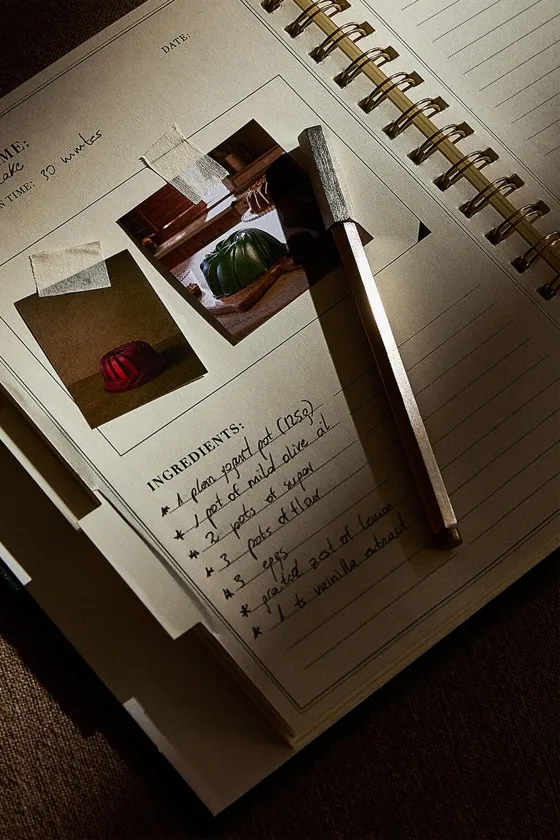 DATE:
ME:
cake
N TIME: 30 minutes
INGREDIENTS:
* 1 plain yogurt pot (125g)
* 1 pot of mild olive oil
* 2 pots of sugar
* 3 pots of flour
* 3 eggs
* grated zest of lemon
* 1 ts vainilla extract